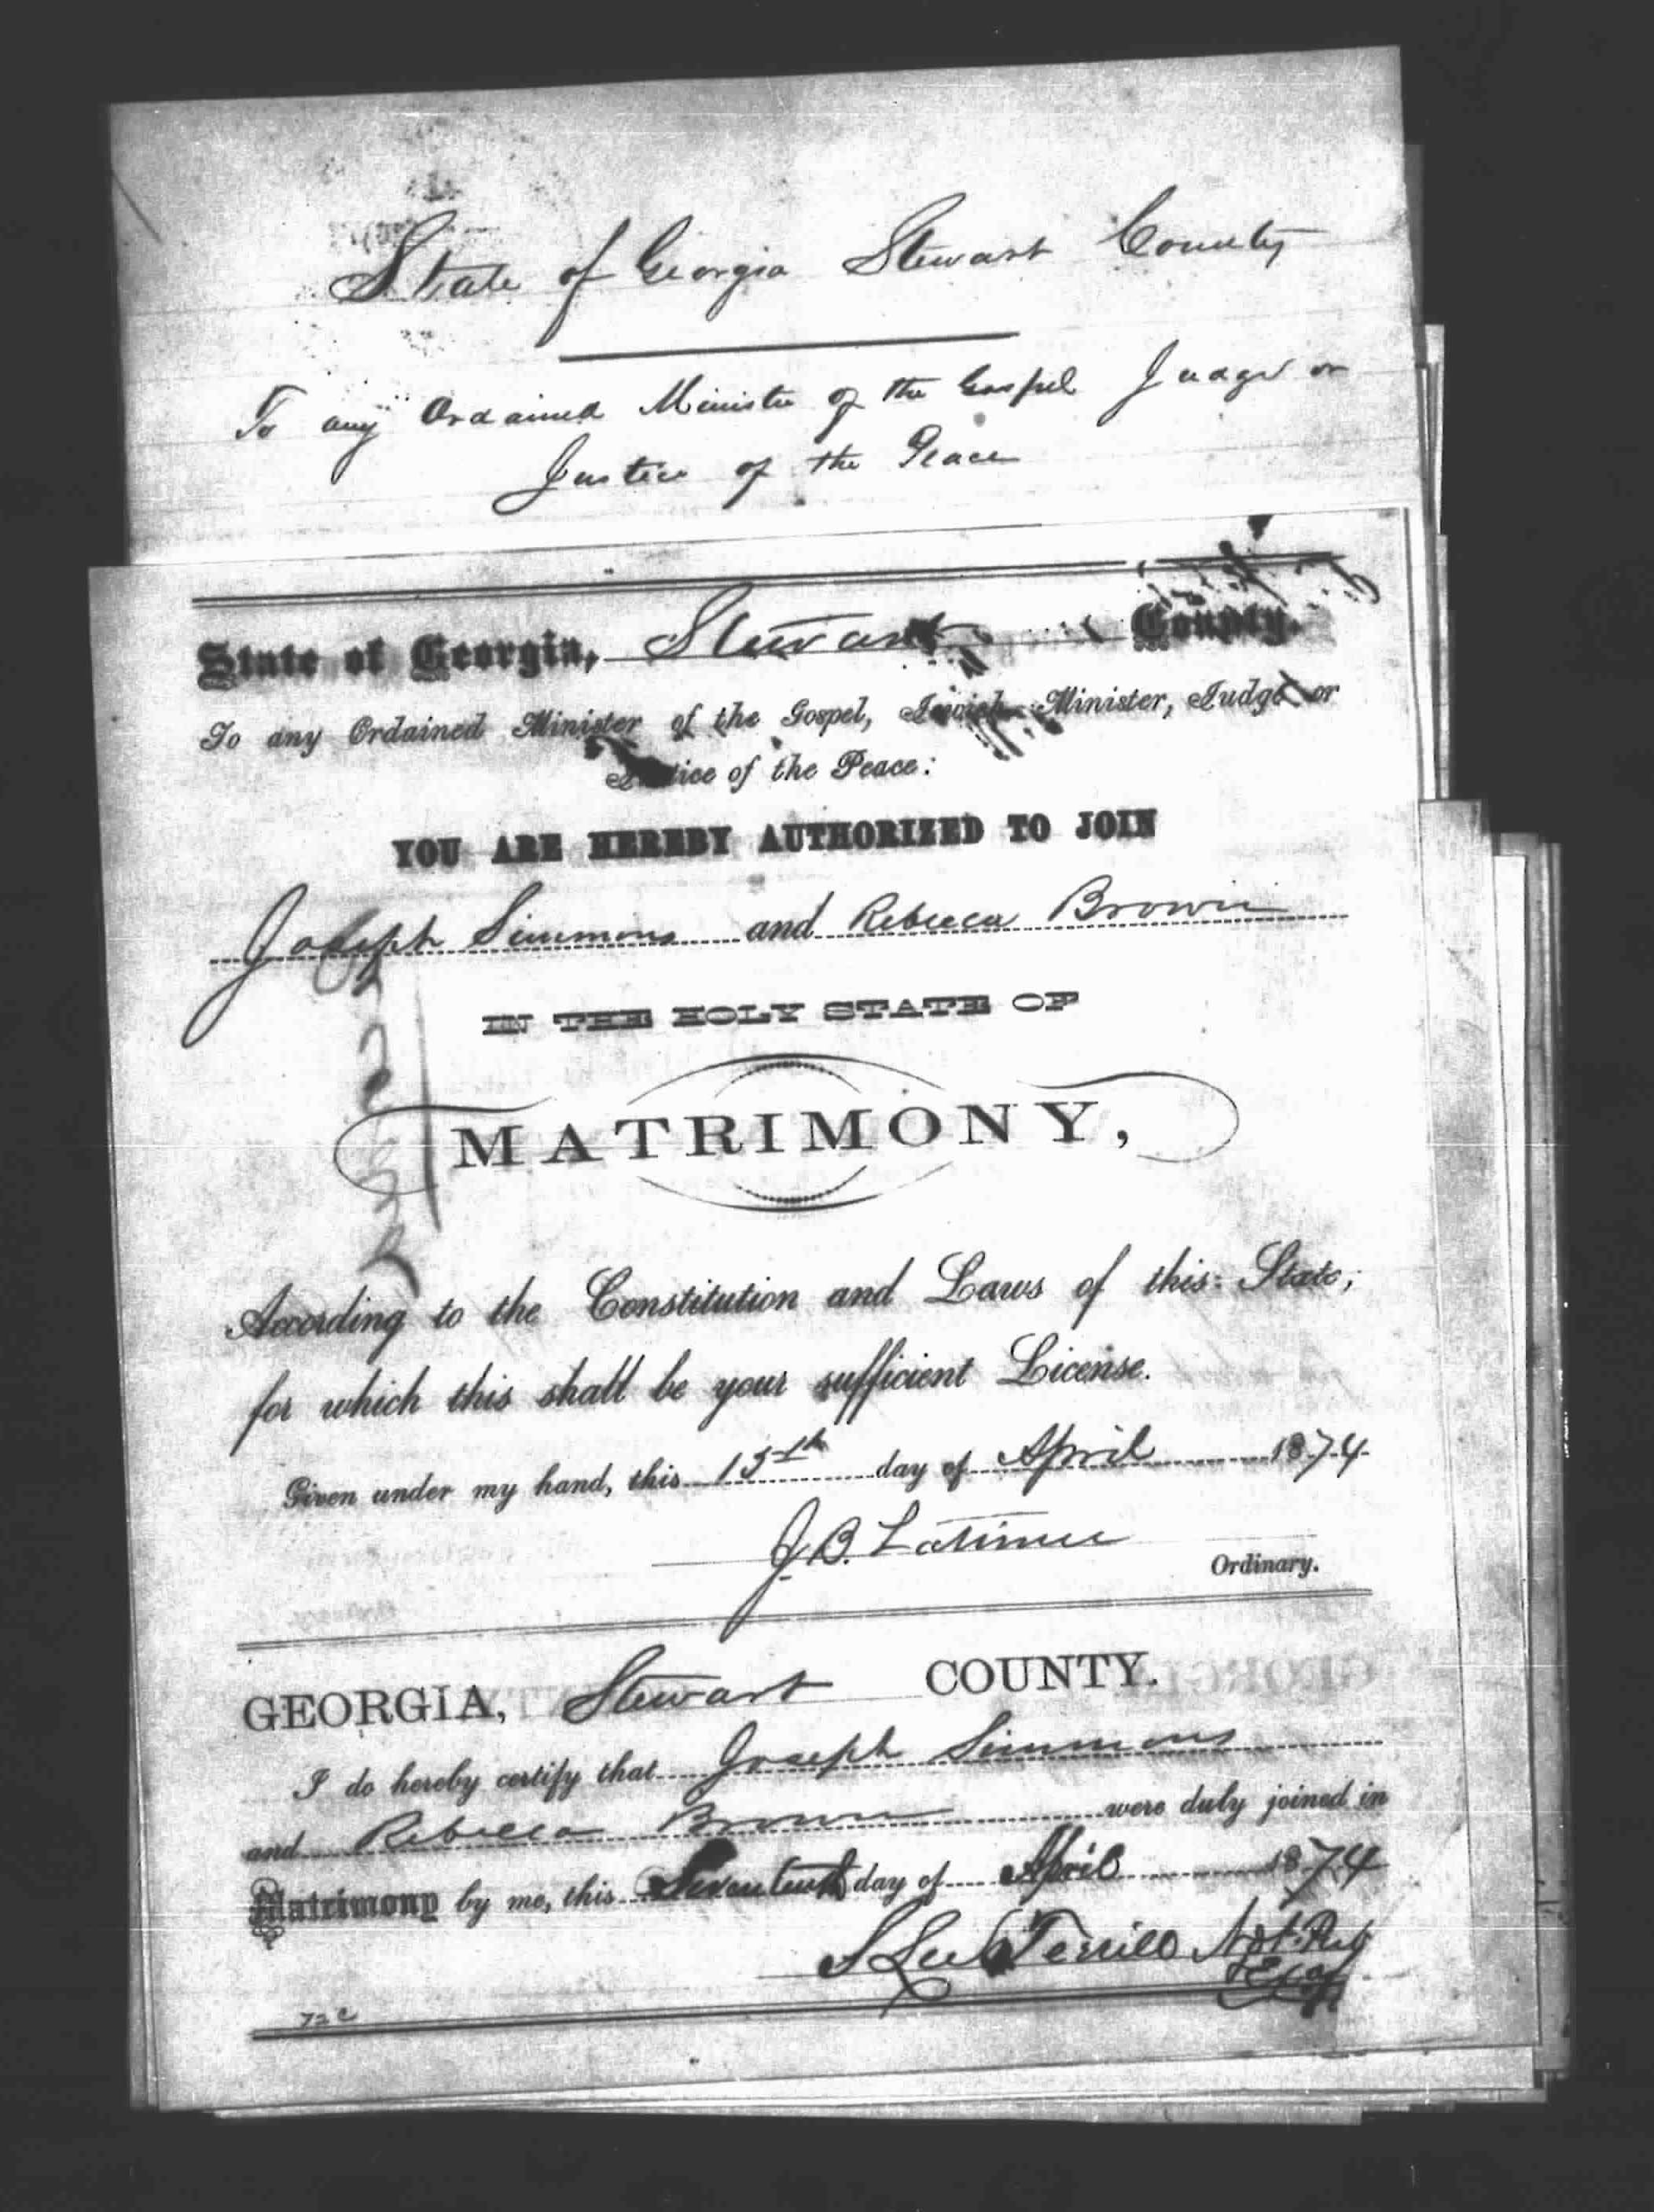 State of Georgia Stewart County
To any Ordained Minister of the Gospel Judge or
Justice of the Peace
State of Georgia, Stewart County.
To any Ordained Minister of the Gospel, Jewish Minister, Judge or
Justice of the Peace:
YOU ARE HEREBY AUTHORIZED TO JOIN
Joseph Simmons and Rebecca Brown
IN THE HOLY STATE OF
MATRIMONY,
According to the Constitution and Laws of this State;
for which this shall be your sufficient License.
Given under my hand, this 15th day of April 1874
J. B. Latimer
Ordinary.
GEORGIA, Stewart COUNTY.
I do hereby certify that Joseph Simmons
and Rebecca Brown were duly joined in
Matrimony by me, this Seventeenth day of April 1874
Terrill Not. Pub
72c